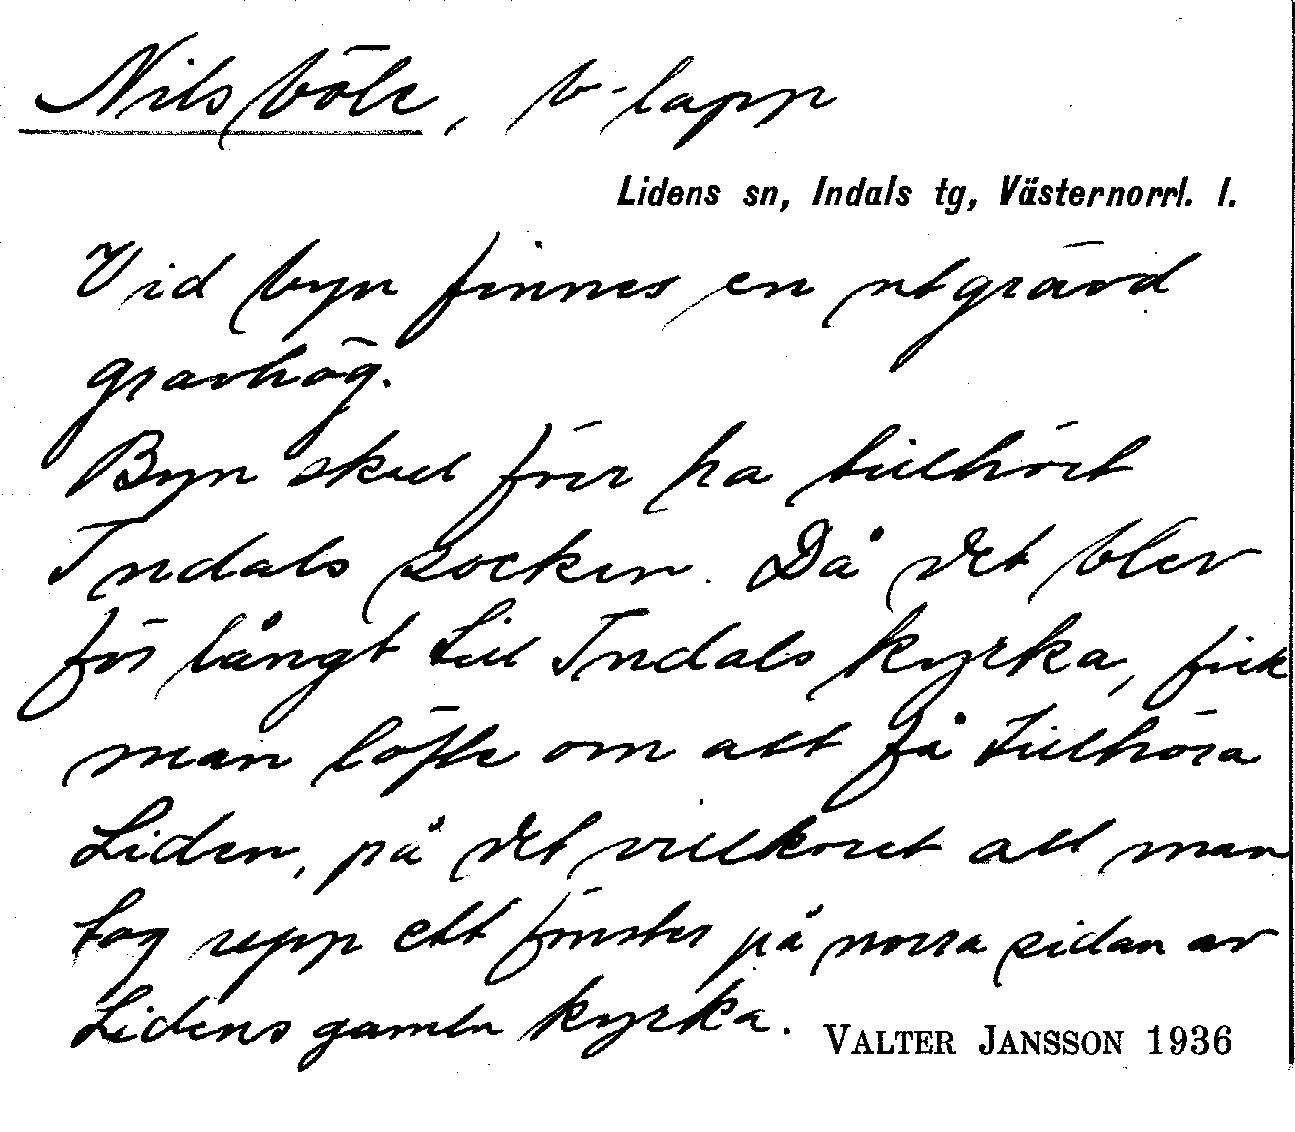 Nilsböle, b-lapp
Lidens sn, Indals tg, Västernorrl. l.
Vid byn finnes en utgrävd
gravhög.
Byn skall förr ha tillhört
Indals socken. Då det blev
för långt till Indals kyrka, fick
man löfte om att få tillhöra
Liden, på det villkoret att man
tog upp ett fönster på norra sidan av
Lidens gamla kyrka.
VALTER JANSSON 1936